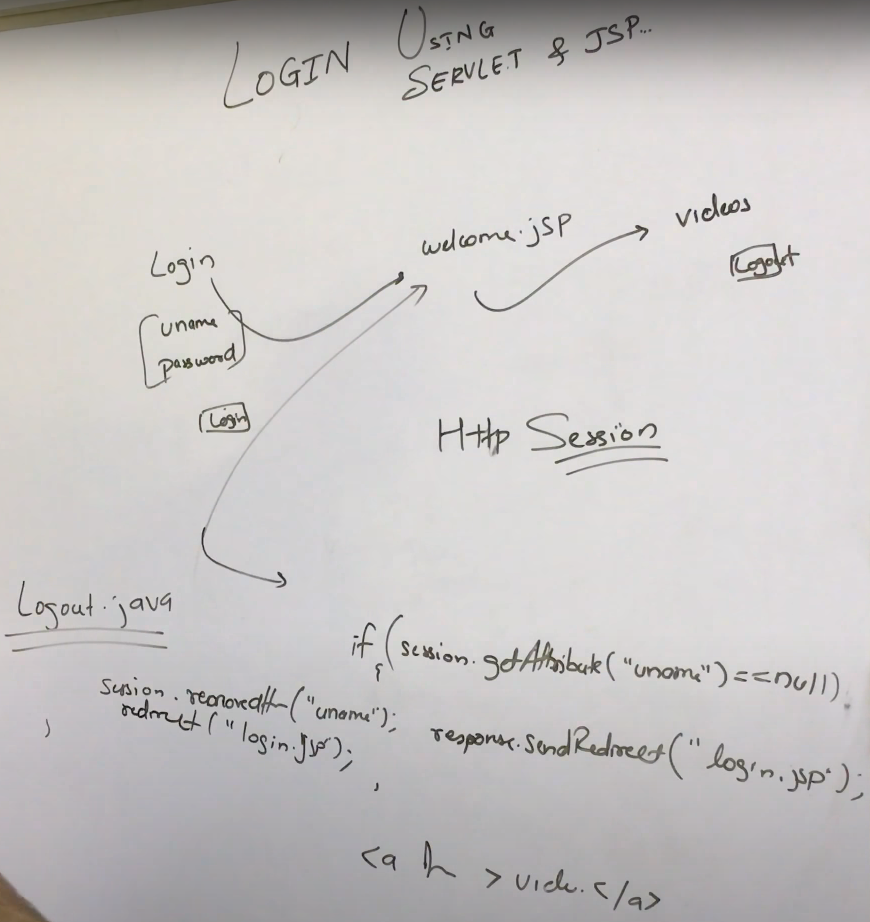 LOGIN USING
SERVLET & JSP...
Login
uname
password
Login
welcome.jsp
videos
Logout
Http Session
Logout.java
session.removeAtt("uname");
redirect("login.jsp");
if (session.getAttribute("uname")==null)
response.sendRedirect("login.jsp");
<a h > vide.</a>